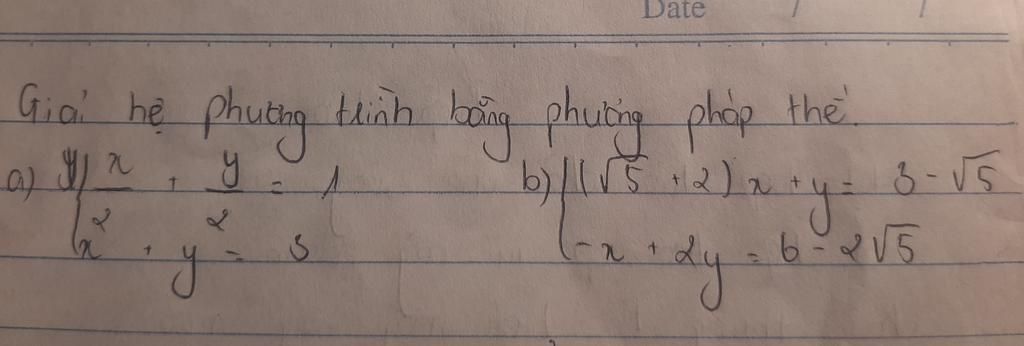 Date / /
Giải hệ phương trình bằng phương pháp thế.
a) { x/2 + y/2 = 1
x² + y = 3
b) { (√5 + 2)x + y = 3 - √5
-x + 2y = 6 - 2√5